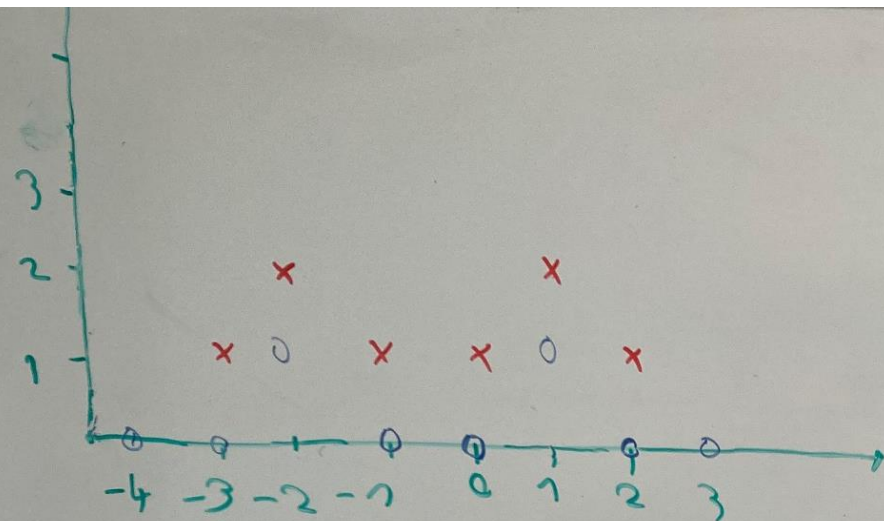 3
2
1
-4 -3 -2 -1 0 1 2 3